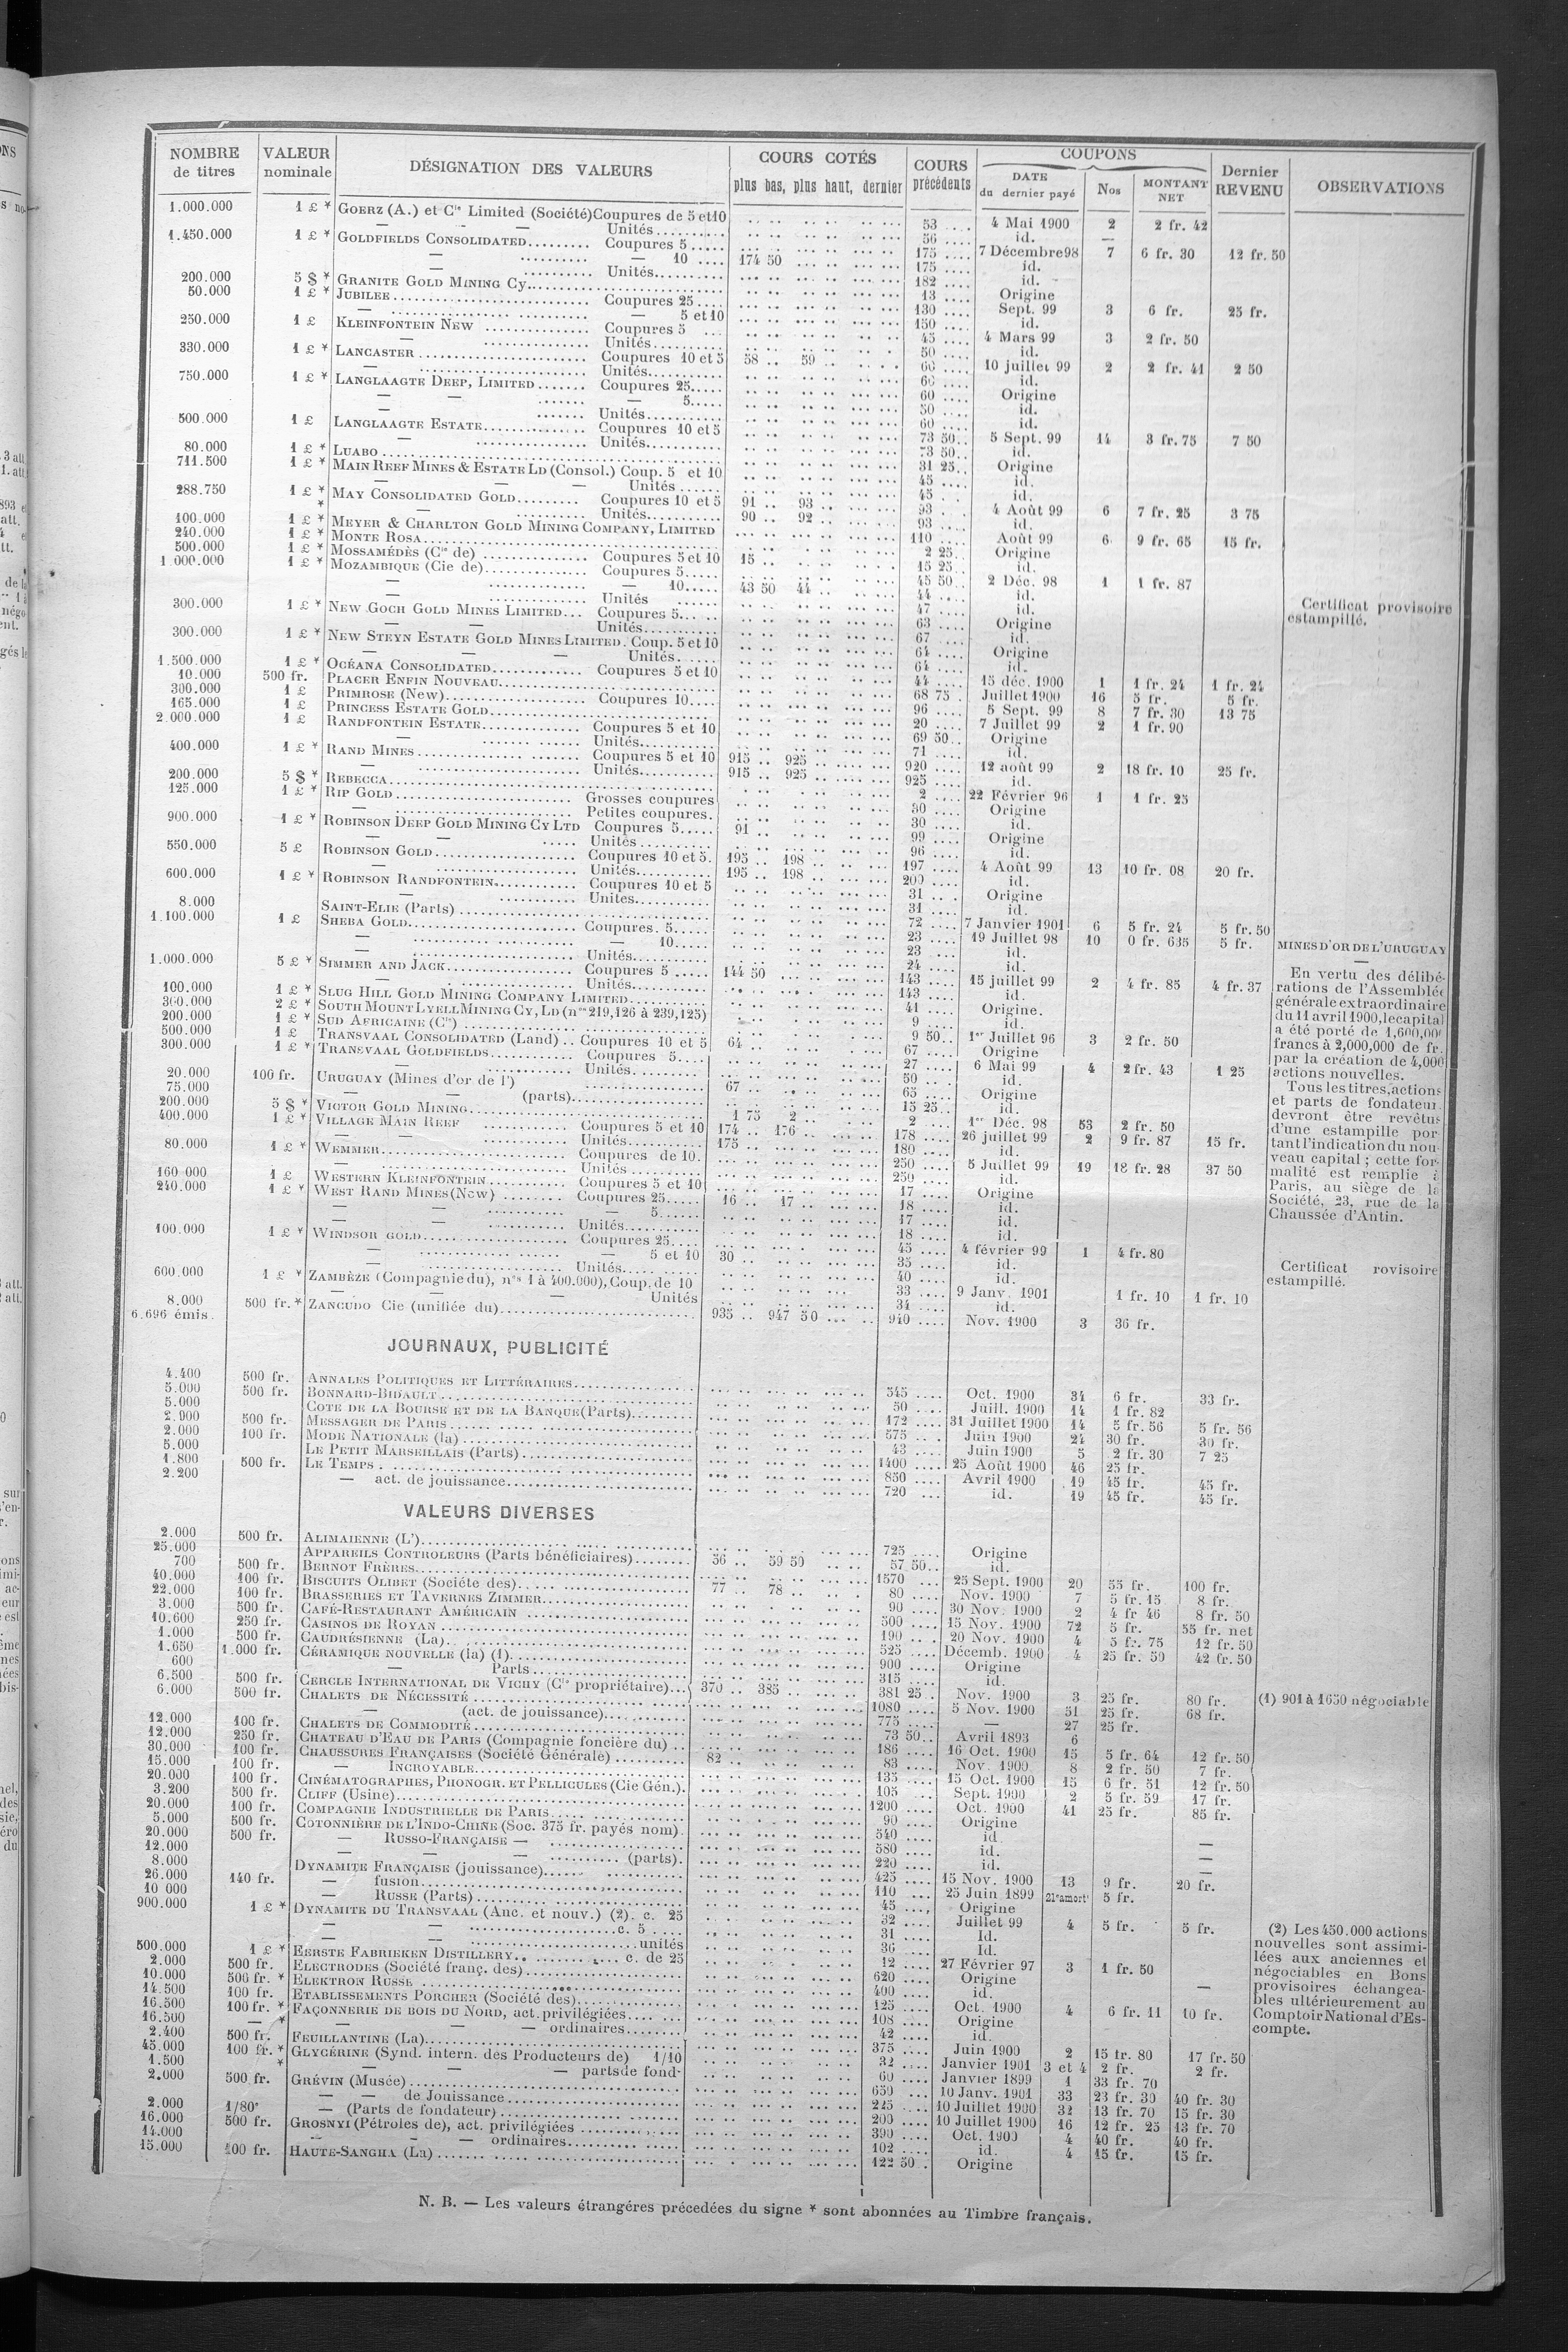 NOMBRE de titres | VALEUR nominale | DÉSIGNATION DES VALEURS | COURS COTÉS plus bas, plus haut, dernier | COURS précédents | COUPONS DATE du dernier payé | Nos | MONTANT NET | Dernier REVENU | OBSERVATIONS
1.000.000 1 £ * GOERZ (A.) et Cie Limited (Société) Coupures de 5 et 10 53 4 Mai 1900 2 2 fr. 42
— — Unités 56 id. —
1.450.000 1 £ * GOLDFIELDS CONSOLIDATED Coupures 5 175 7 Décembre 98 7 6 fr. 30 12 fr. 50
— — 10 174 50 175 id.
— Unités 182 id.
200.000 5 $ * GRANITE GOLD MINING Cy 13 Origine
50.000 1 £ * JUBILEE Coupures 25 130 Sept. 99 3 6 fr. 25 fr.
— — 5 et 10 150 id.
250.000 1 £ KLEINFONTEIN NEW Coupures 5 45 4 Mars 99 3 2 fr. 50
— Unités 50 id.
330.000 1 £ * LANCASTER Coupures 10 et 5 58 59 60 10 juillet 99 2 2 fr. 41 2 50
— Unités 60 id.
750.000 1 £ * LANGLAAGTE DEEP, LIMITED Coupures 25 60 Origine
— — — 5 50 id.
— — Unités 60 id.
500.000 1 £ LANGLAAGTE ESTATE Coupures 10 et 5 73 50 5 Sept. 99 14 3 fr. 75 7 50
— Unités 73 50 id.
80.000 1 £ * LUABO 31 25 Origine
711.500 1 £ * MAIN REEF MINES & ESTATE LD (Consol.) Coup. 5 et 10 45 id.
— — — Unités 45 id.
288.750 1 £ * MAY CONSOLIDATED GOLD Coupures 10 et 5 91 93 93 4 Août 99 6 7 fr. 25 3 75
* — — Unités 90 92 93 id.
100.000 1 £ * MEYER & CHARLTON GOLD MINING COMPANY, LIMITED 110 Août 99 6 9 fr. 65 15 fr.
240.000 1 £ * MONTE ROSA 2 25 Origine
500.000 1 £ * MOSSAMÉDÈS (Cie de) Coupures 5 et 10 15 15 25 id.
1.000.000 1 £ * MOZAMBIQUE (Cie de) Coupures 5 45 50 2 Déc. 98 1 1 fr. 87
— — 10 43 50 44 44 id.
— Unités 47 id.
300.000 1 £ * NEW GOCH GOLD MINES LIMITED Coupures 5 63 Origine Certificat provisoire estampillé.
— — Unités 67 id.
300.000 1 £ * NEW STEYN ESTATE GOLD MINES LIMITED. Coup. 5 et 10 64 Origine
— — — Unités 64 id.
1.500.000 1 £ * OCÉANA CONSOLIDATED Coupures 5 et 10 44 15 déc. 1900 1 1 fr. 24 1 fr. 24
10.000 500 fr. PLACER ENFIN NOUVEAU 68 75 Juillet 1900 16 5 fr. 5 fr.
300.000 1 £ PRIMROSE (New) Coupures 10 96 5 Sept. 99 8 7 fr. 30 13 75
165.000 1 £ PRINCESS ESTATE GOLD 20 7 Juillet 99 2 1 fr. 90
2.000.000 1 £ RANDFONTEIN ESTATE Coupures 5 et 10 69 50 Origine
— — Unités 71 id.
400.000 1 £ * RAND MINES Coupures 5 et 10 915 925 920 12 août 99 2 18 fr. 10 25 fr.
— Unités 915 925 925 id.
200.000 5 $ * REBECCA 2 22 Février 96 1 1 fr. 25
125.000 1 £ * RIP GOLD Grosses coupures 30 Origine
— Petites coupures. 30 id.
900.000 1 £ * ROBINSON DEEP GOLD MINING CY LTD Coupures 5 91 99 Origine
— — Unités 96 id.
550.000 5 £ ROBINSON GOLD Coupures 10 et 5. 195 198 197 4 Août 99 13 10 fr. 08 20 fr.
— Unités 195 198 200 id.
600.000 1 £ * ROBINSON RANDFONTEIN Coupures 10 et 5 31 Origine
— Unites 31 id.
8.000 SAINT-ELIE (Parts) 72 7 Janvier 1901 6 5 fr. 24 5 fr. 50
1.100.000 1 £ SHEBA GOLD Coupures. 5 23 19 Juillet 98 10 0 fr. 635 5 fr.
— — 10 23 id.
— Unités 24 id.
1.000.000 5 £ * SIMMER AND JACK Coupures 5 144 50 143 15 juillet 99 2 4 fr. 85 4 fr. 37
— Unités 143 id.
100.000 1 £ * SLUG HILL GOLD MINING COMPANY LIMITED 41 Origine.
300.000 2 £ * SOUTH MOUNT LYELL MINING CY, LD (nos 219,126 à 239,125) 9 id.
200.000 1 £ * SUD AFRICAINE (Cie) 9 50 1er Juillet 96 3 2 fr. 50
500.000 1 £ TRANSVAAL CONSOLIDATED (Land) Coupures 10 et 5 64 67 Origine
300.000 1 £ * TRANSVAAL GOLDFIELDS Coupures 5 27 6 Mai 99 4 2 fr. 43 1 25
— Unités 50 id.
20.000 100 fr. URUGUAY (Mines d'or de l') 67 65 Origine
75.000 — — (parts) 15 25 id.
200.000 5 $ * VICTOR GOLD MINING 1 75 2 2 1er Déc. 98 53 2 fr. 50
400.000 1 £ * VILLAGE MAIN REEF Coupures 5 et 10 174 176 178 26 juillet 99 2 9 fr. 87 15 fr.
— — Unités 175 180 id.
80.000 1 £ * WEMMER Coupures de 10. 250 5 Juillet 99 19 18 fr. 28 37 50
— Unités 250 id.
160 000 1 £ WESTERN KLEINFONTEIN Coupures 5 et 10 17 Origine
240.000 1 £ * WEST RAND MINES (New) Coupures 25 16 17 18 id.
— — — 5 17 id.
— — Unités 18 id.
100.000 1 £ * WINDSOR GOLD Coupures 25 45 4 février 99 1 4 fr. 80
— — 5 et 10 30 35 id.
— Unités 40 id.
600.000 1 £ * ZAMBÈZE (Compagnie du), nos 1 à 400.000), Coup. de 10 33 9 Janv. 1901 1 fr. 10 1 fr. 10
— — — Unités 34 id.
8.000 500 fr. * ZANCUDO Cie (unifiée du) 935 947 50 940 Nov. 1900 3 36 fr.
6.696 émis.
MINES D'OR DE L'URUGUAY
—
En vertu des délibé-
rations de l'Assemblée
générale extraordinaire
du 11 avril 1900, le capital
a été porté de 1,600,000
francs à 2,000,000 de fr.
par la création de 4,000
actions nouvelles.
Tous les titres, actions
et parts de fondateur
devront être revêtus
d'une estampille por-
tant l'indication du nou-
veau capital ; cette for-
malité est remplie à
Paris, au siège de la
Société, 23, rue de la
Chaussée d'Antin.
Certificat rovisoire
estampillé.
JOURNAUX, PUBLICITÉ
4.400 500 fr. ANNALES POLITIQUES ET LITTÉRAIRES 545 Oct. 1900 34 6 fr. 33 fr.
5.000 500 fr. BONNARD-BIDAULT 50 Juill. 1900 14 1 fr. 82
5.000 COTE DE LA BOURSE ET DE LA BANQUE (Parts) 172 31 Juillet 1900 14 5 fr. 56 5 fr. 56
2.900 500 fr. MESSAGER DE PARIS 575 Juin 1900 24 30 fr. 30 fr.
2.000 100 fr. MODE NATIONALE (la) 43 Juin 1900 5 2 fr. 30 7 25
5.000 LE PETIT MARSEILLAIS (Parts) 1400 25 Août 1900 46 25 fr.
1.800 500 fr. LE TEMPS 850 Avril 1900 19 45 fr. 45 fr.
2.200 — act. de jouissance 720 id. 19 45 fr. 45 fr.
VALEURS DIVERSES
2.000 500 fr. ALIMAIENNE (L') 725 Origine
25.000 APPAREILS CONTROLEURS (Parts bénéficiaires) 56 59 50 57 50 id.
700 500 fr. BERNOT FRÈRES 1570 25 Sept. 1900 20 55 fr. 100 fr.
40.000 100 fr. BISCUITS OLIBET (Société des) 77 78 80 Nov. 1900 7 5 fr. 15 8 fr.
22.000 100 fr. BRASSERIES ET TAVERNES ZIMMER 90 30 Nov. 1900 2 4 fr 46 8 fr. 50
3.000 500 fr. CAFÉ-RESTAURANT AMÉRICAIN 500 15 Nov. 1900 72 5 fr. 55 fr. net
10.600 250 fr. CASINOS DE ROYAN 190 20 Nov. 1900 4 5 fr. 75 12 fr. 50
1.000 500 fr. CAUDRÉSIENNE (La) 525 Décemb. 1900 4 25 fr. 59 42 fr. 50
1.650 1.000 fr. CÉRAMIQUE NOUVELLE (la) (1) 900 Origine
600 — Parts 315 id.
6.500 500 fr. CERCLE INTERNATIONAL DE VICHY (Cie propriétaire) 370 385 381 25 Nov. 1900 3 25 fr. 80 fr. (1) 901 à 1650 négociable
6.000 500 fr. CHALETS DE NÉCESSITÉ 1080 5 Nov. 1900 51 25 fr. 68 fr.
— (act. de jouissance) 775 — 27 25 fr.
12.000 100 fr. CHALETS DE COMMODITÉ 73 50 Avril 1893 6
12.000 250 fr. CHATEAU D'EAU DE PARIS (Compagnie foncière du) 186 16 Oct. 1900 15 5 fr. 64 12 fr. 50
30.000 100 fr. CHAUSSURES FRANÇAISES (Société Générale) 82 83 Nov. 1900 8 2 fr. 50 7 fr.
15.000 100 fr. — INCROYABLE 135 15 Oct. 1900 15 6 fr. 51 12 fr. 50
20.000 100 fr. CINÉMATOGRAPHES, PHONOGR. ET PELLICULES (Cie Gén.). 105 Sept. 1900 2 5 fr. 59 17 fr.
3.200 500 fr. CLIFF (Usine) 1200 Oct. 1900 41 25 fr. 85 fr.
20.000 100 fr. COMPAGNIE INDUSTRIELLE DE PARIS 90 Origine
5.000 500 fr. COTONNIÈRE DE L'INDO-CHINE (Soc. 375 fr. payés nom) 540 id. —
20.000 500 fr. — RUSSO-FRANÇAISE — 580 id. —
12.000 — — (parts). 220 id. —
8.000 DYNAMITE FRANÇAISE (jouissance) 425 15 Nov. 1900 13 9 fr. 20 fr.
26.000 140 fr. — fusion 110 25 Juin 1899 5 fr.
10 000 — RUSSE (Parts) 45 Origine
900.000 1 £ * DYNAMITE DU TRANSVAAL (Anc. et nouv.) (2). c. 25 32 Juillet 99 4 5 fr. 5 fr.
— — c. 5 31 Id.
— — unités 36 Id.
500.000 1 £ * EERSTE FABRIEKEN DISTILLERY c. de 25 12 27 Février 97 3 1 fr. 50
2.000 500 fr. ELECTRODES (Société franç. des) 620 Origine
10.000 500 fr. * ELEKTRON RUSSE 400 id. —
14.500 100 fr. ETABLISSEMENTS PORCHER (Société des) 125 Oct. 1900 4 6 fr. 11 10 fr.
16.500 100 fr. * FAÇONNERIE DE BOIS DU NORD, act. privilégiées 108 Origine
16.500 — * — — — ordinaires 42 id.
2.400 500 fr. FEUILLANTINE (La) 375 Juin 1900 2 15 fr. 80 17 fr. 50
45.000 100 fr. * GLYCÉRINE (Synd. intern. des Producteurs de) 1/10 32 Janvier 1901 3 et 4 2 fr. 2 fr.
1.500 * — — — parts de fond- 60 Janvier 1899 1 33 fr. 70
2.000 500 fr. GRÉVIN (Musée) 650 10 Janv. 1901 33 23 fr. 30 40 fr. 30
— — de Jouissance 225 10 Juillet 1900 32 13 fr. 70 15 fr. 30
2.000 1/80e — (Parts de fondateur) 200 10 Juillet 1900 16 12 fr. 25 13 fr. 70
16.000 500 fr. GROSNYI (Pétroles de), act. privilégiées 390 Oct. 1900 4 40 fr. 40 fr.
14.000 — — — ordinaires 102 id. 4 15 fr. 15 fr.
15.000 100 fr. HAUTE-SANGHA (La) 122 50 Origine
(2) Les 450.000 actions
nouvelles sont assimi-
lées aux anciennes et
négociables en Bons
provisoires échangea-
bles ultérieurement au
Comptoir National d'Es-
compte.
N. B. — Les valeurs étrangéres précedées du signe * sont abonnées au Timbre français.